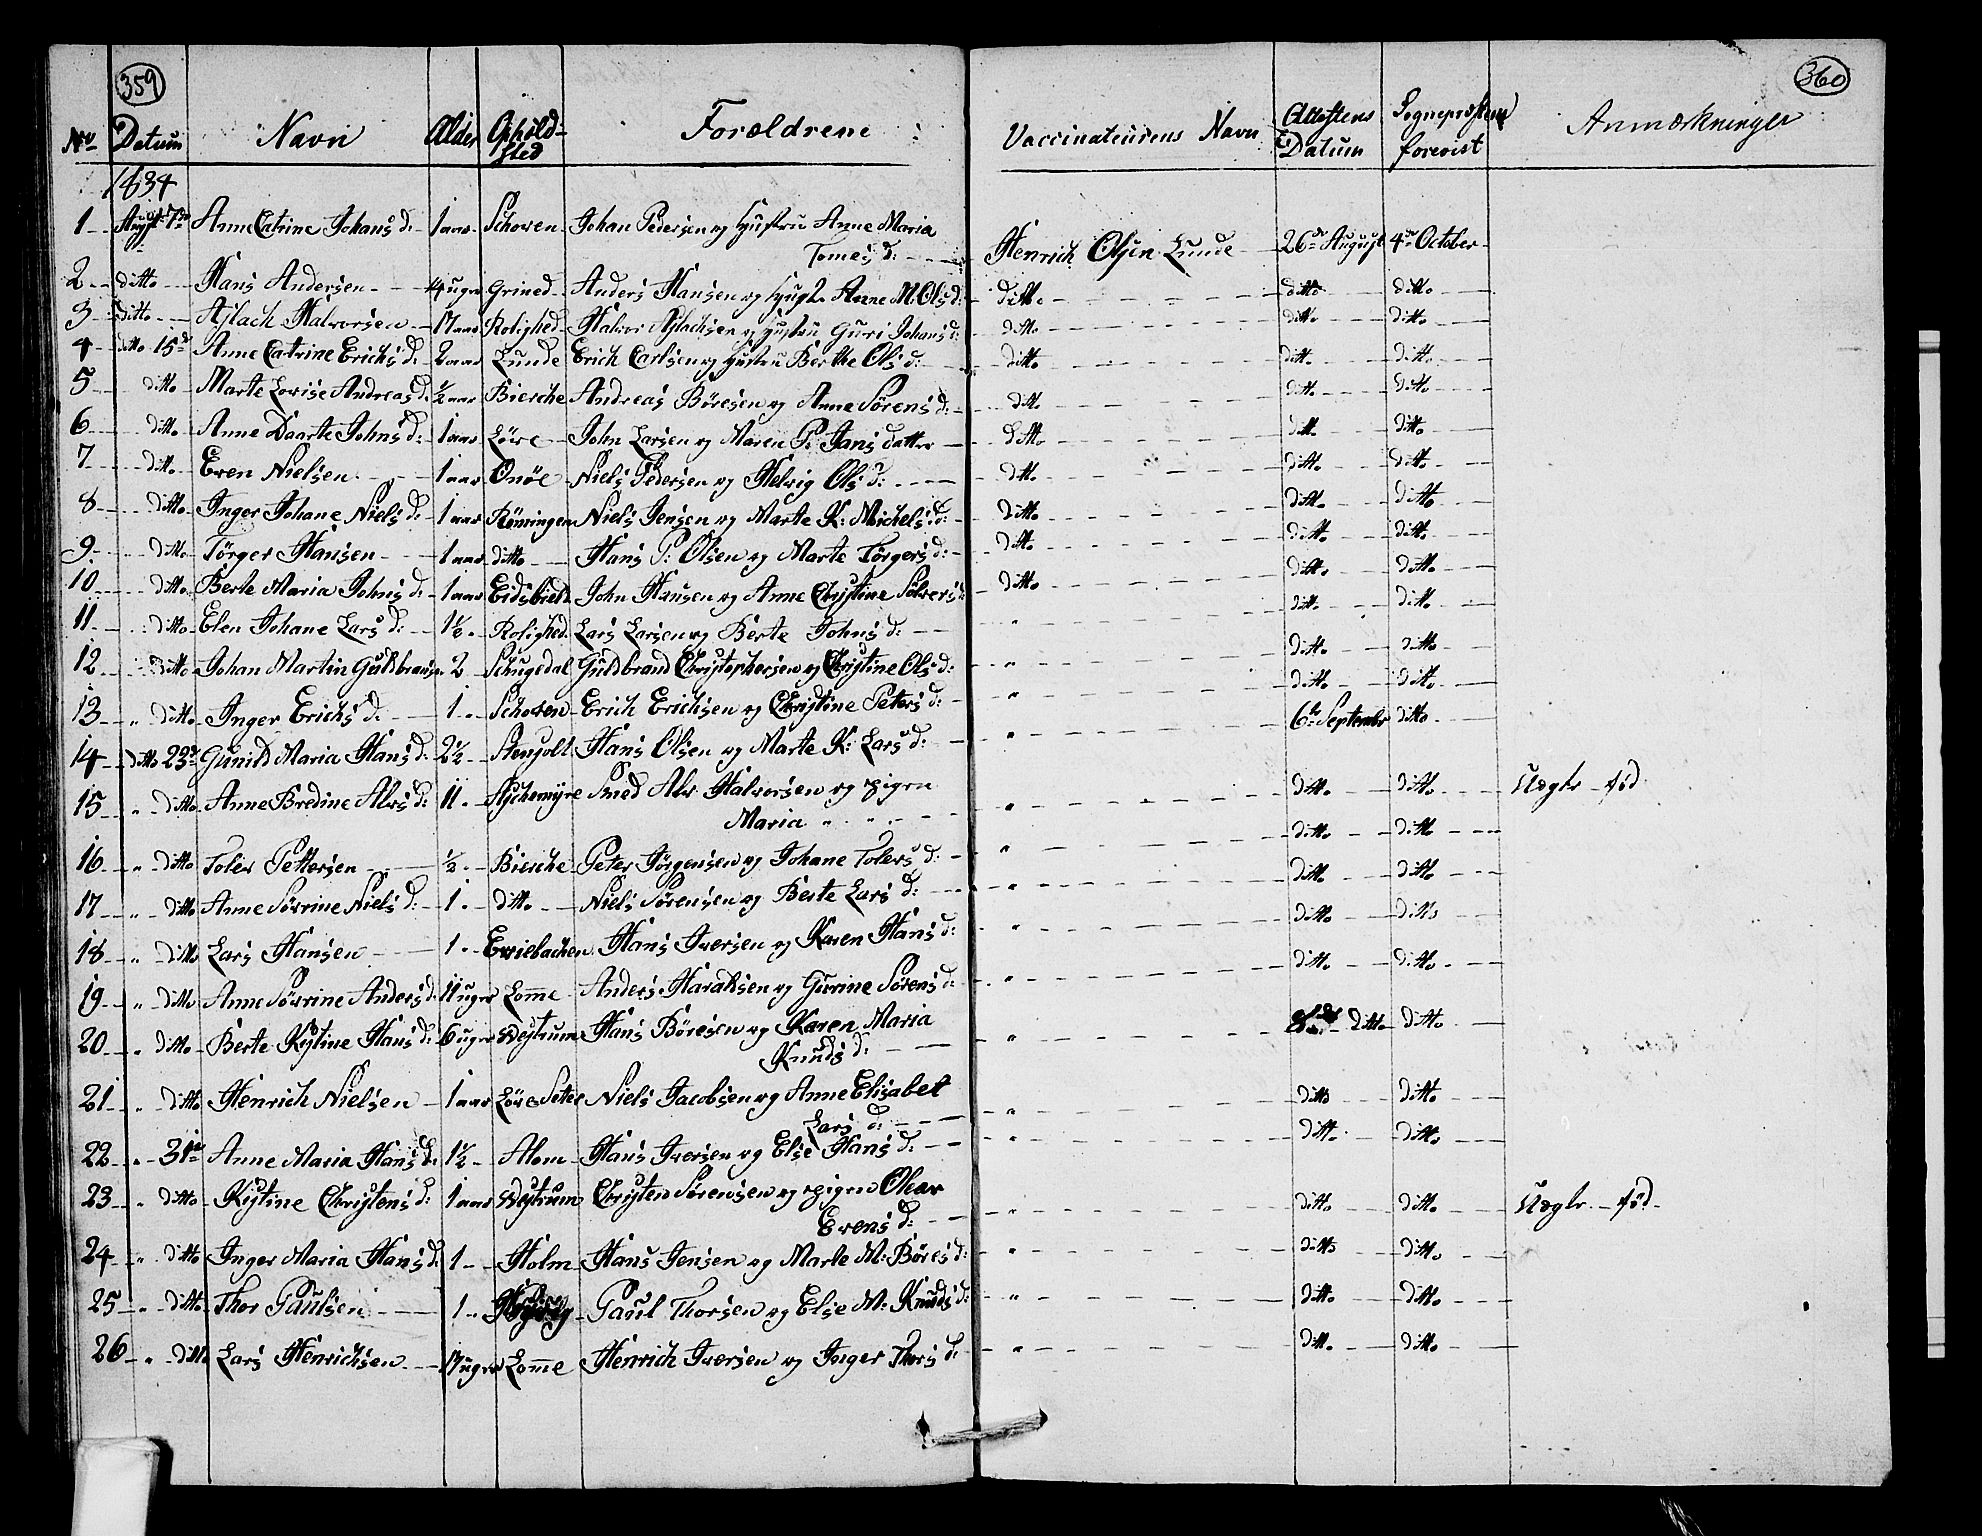 359
No Datum Navn Alder Ophold-
sted Forældrene
1834
1 August 7de Anne Catrine Johans d: 1 aar Schoven Johan Pedersen og Hustru Anne Maria
Tomes d:
2 ditto Hans Andersen 14 uger Grined Anders Hansen og Hust. Anne M. Ols d:
3 ditto Aslach Halvorsen 17 aar Rolighed Halvor Aslachsen og Hustru Gurri Johans d:
4 ditto 15de Anne Catrine Erichs d: 2 aar Lunde Erich Carlsen og Hustru Berthe Ols d:
5 ditto Marte Lovise Andreas d. ½ aar Bierche Andreas Børesen og Anne Sørens d:
6 ditto Anne Daarte Johns d: 1 aar Løvre John Larsen og Maren P: Jans datter
7 ditto Even Nielsen 1 aar Onøe Niels Pedersen og Helvig Ols d:
8 ditto Inger Johane Niels d: 1 aar Rønningen Niels Jensen og Marte K: Michels d:
9 ditto Tørger Hansen 1 aar ditto Hans P: Olsen og Marte Tørgers d:
10 ditto Berte Maria Johns d: 1 aar Eidsbield John Hansen og Anne Christine Sølvers d:
11 ditto Elen Johane Lars d: 1½ Rolighed Lars Larsen og Berte Johns d:
12 ditto Johan Martin Guldbransen 2 Schugedal Guldbrand Christophersen og Christine Ols d:
13 " ditto Inger Erichs d: 1 Schoven Erich Erichsen og Christine Peters d:
14 ditto 23de Gunild Maria Hans d: 2½ Stenjolt Hans Olsen og Marte K: Lars d:
15 " ditto Anne Bredine Alvs d: 11 Støchemyre Smed Alv Halvorsen og pigen
Maria " "
16 " ditto Toler Pettersen ½ Bierche Peter Jørgensen og Johane Tolers d:
17 " ditto Anne Sørrine Niels d: 1 ditto Niels Sørensen og Berte Lars d:
18 " ditto Lars Hansen 1 Evviebachen Hans Iversen og Karen Hans d:
19 " ditto Anne Sørrine Anders d: 11 uger Lom̄e Anders Haralsen og Gurine Sørens d:
20 " ditto Berte Kistine Hans d: 6 uger Westrum Hans Børesen og Karen Maria
Knuds d:
21 " ditto Henrich Nielsen 1 aar Løvre Seter Niels Jacobsen og Anne Elisabet
Lars d:
22 " 31te Anne Maria Hans d: 1½ Alom Hans Iversen og Else Hans d:
23 " ditto Kistine Christens d: 1 aar Westrum Christen Sørensen og pigen Olea
Evens d:
24 " ditto Inger Maria Hans d: 1 Holm Hans Jensen og Marte M: Børes d:
25 " ditto Thor Paulsen 1 Paul Thorsen og Else M: Knuds d:
26 " ditto Lars Henrichsen 17 uger Lom̄e Henrich Iversen og Inger Thors d:
360
Vaccinateurens Navn Attestens
Datum Sognepræsten
forevist Anmærkninger
Henrich Olsen Lunde 26de August 4de October
ditto ditto ditto
ditto ditto ditto
ditto ditto ditto
ditto ditto ditto
ditto ditto ditto
ditto ditto ditto
ditto ditto ditto
ditto ditto ditto
ditto ditto ditto
" ditto ditto
" ditto ditto
" ditto ditto
" 6te September ditto
" ditto ditto Uægte fød
" ditto ditto
" ditto ditto
" ditto ditto
" ditto ditto
" 8de ditto ditto
" ditto ditto
" ditto ditto
" ditto ditto Uægte fød
" ditto ditto
" ditto ditto
" ditto ditto